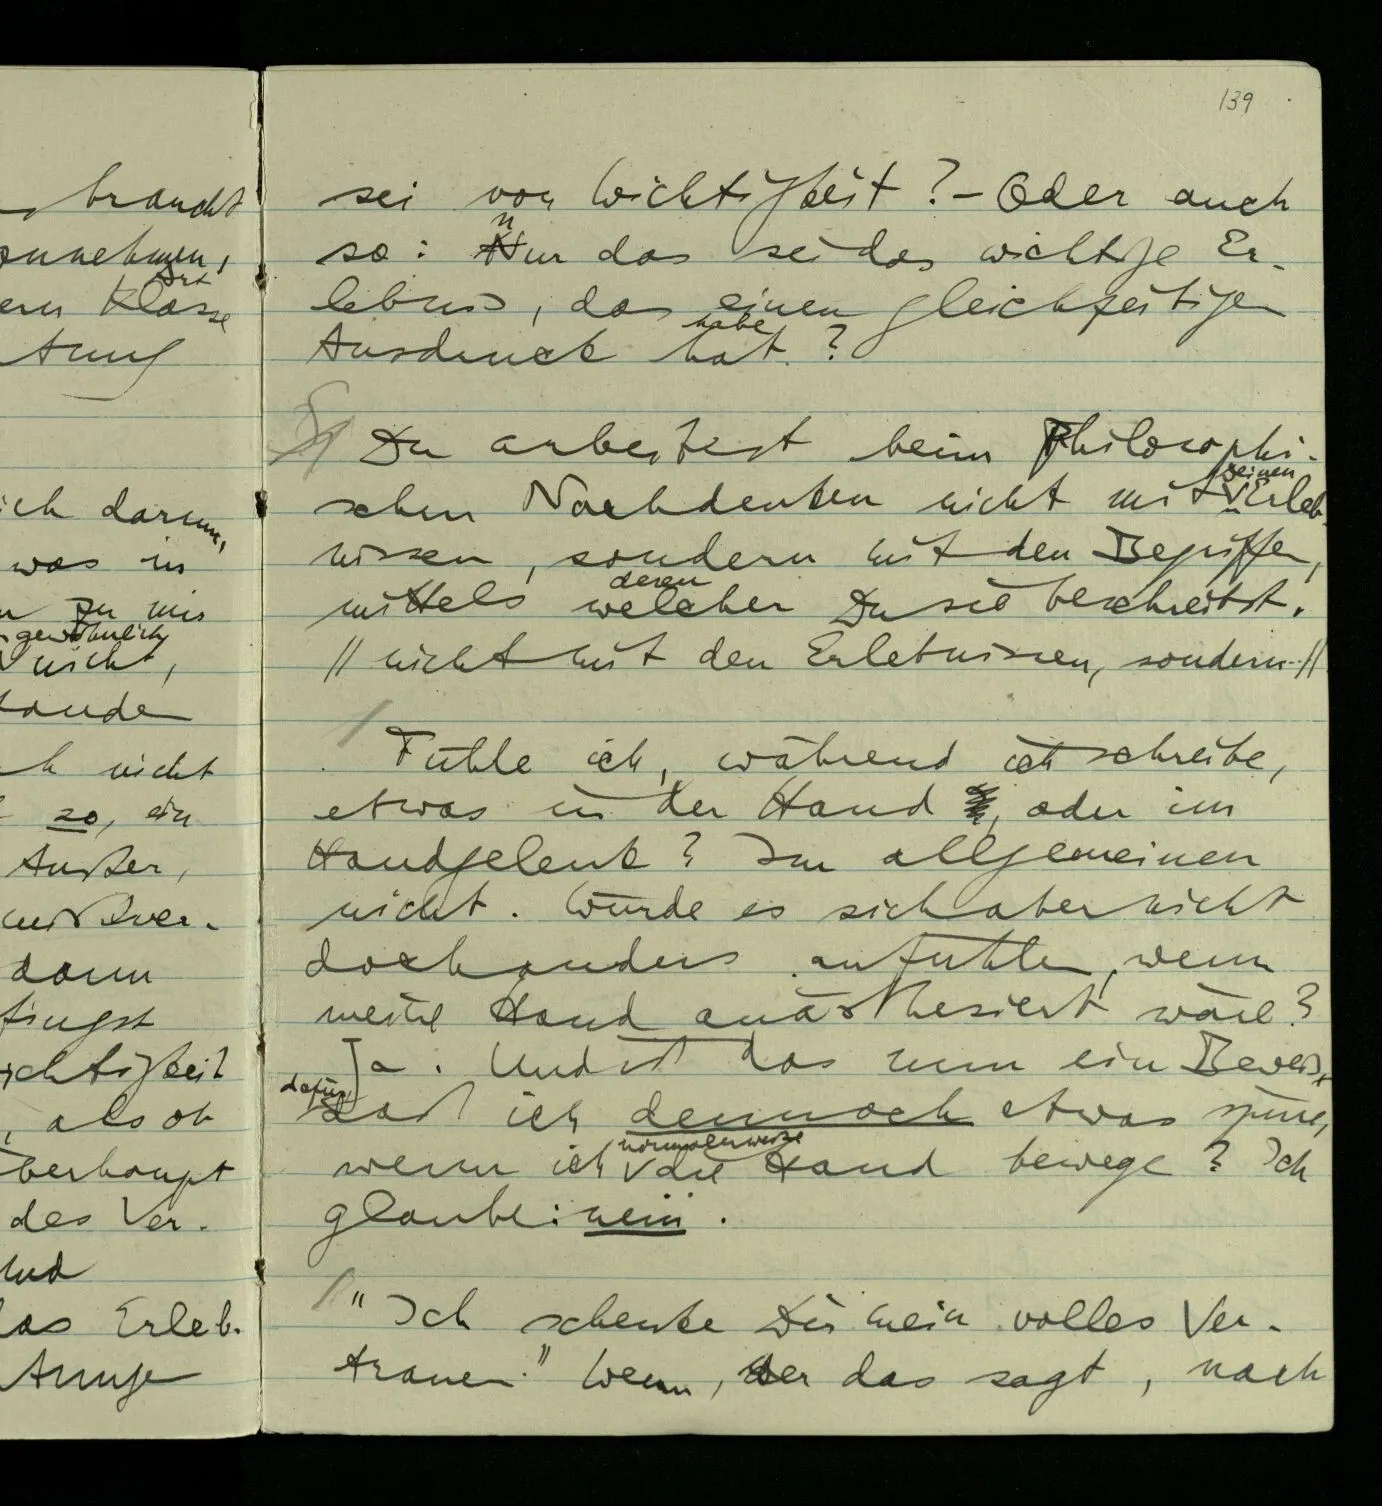 139
brancht
annehmen,
Art
ern Klasse
ich darum,
was in
zu mir
gewöhnlich
nicht,
nicht
so, ein
Außer,
dann
fingst
ichtigkeit
, als ob
berhaupt
des Ver-
und
as Erleb-
sei von Wichtigkeit? – Oder auch
n
so: Nur das sei das wichtige Er-
lebnis, das einen gleichzeitigen
habe
Ausdruck hat?
Du arbeitest beim Philosophi-
Deinen
schen Nachdenken nicht mit Erleb-
nissen, sondern mit den Begriffen,
deren
mittels welcher Du sie beschreibst.
// nicht mit den Erlebnissen, sondern..//
Fühle ich, während ich schreibe,
etwas in der Hand, oder im
Handgelenk? Im allgemeinen
nicht. Würde es sich aber nicht
doch anders anfühlen, wenn
meine Hand anästhesiert wäre?
Ja. Und ist das nun ein Beweis,
dafür
daß ich dennoch etwas spüre,
normalerweise
wenn ich die Hand bewege? Ich
glaube: nein.
"Ich schenke Dir mein volles Ver-
trauen." Wenn, der das sagt, nach